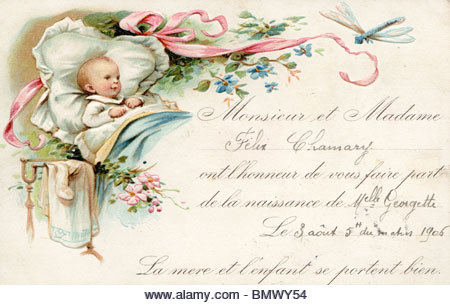 Monsieur et Madame
Félix Chamary
ont l'honneur de vous faire part
de la naissance de Melle Georgette
Le 3 août 5h du matin 1906
La mere et l'enfant se portent bien.
alamy
www.alamy.com - BMWY54